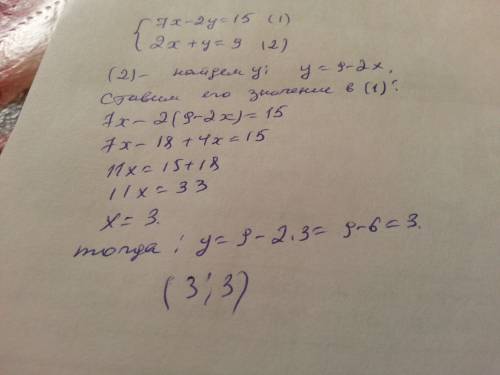 { 7x-2y=15 (1)
2x+y=9 (2)
(2)- найдем y: y=9-2x,
Ставим его значение в (1):
7x-2(9-2x)=15
7x-18+4x=15
11x=15+18
11x=33
x=3.
тогда: y=9-2.3=9-6=3.
(3;3)